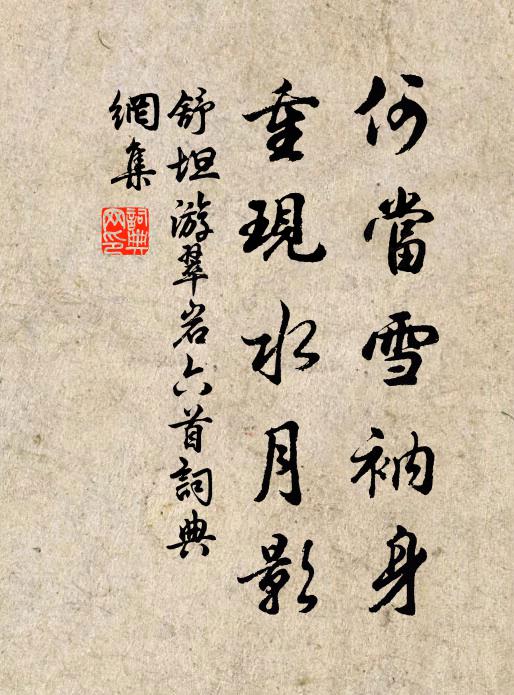 何當雪衲身
重現水月影
舒坦游翠岩六首詞典
網集
詞典網印